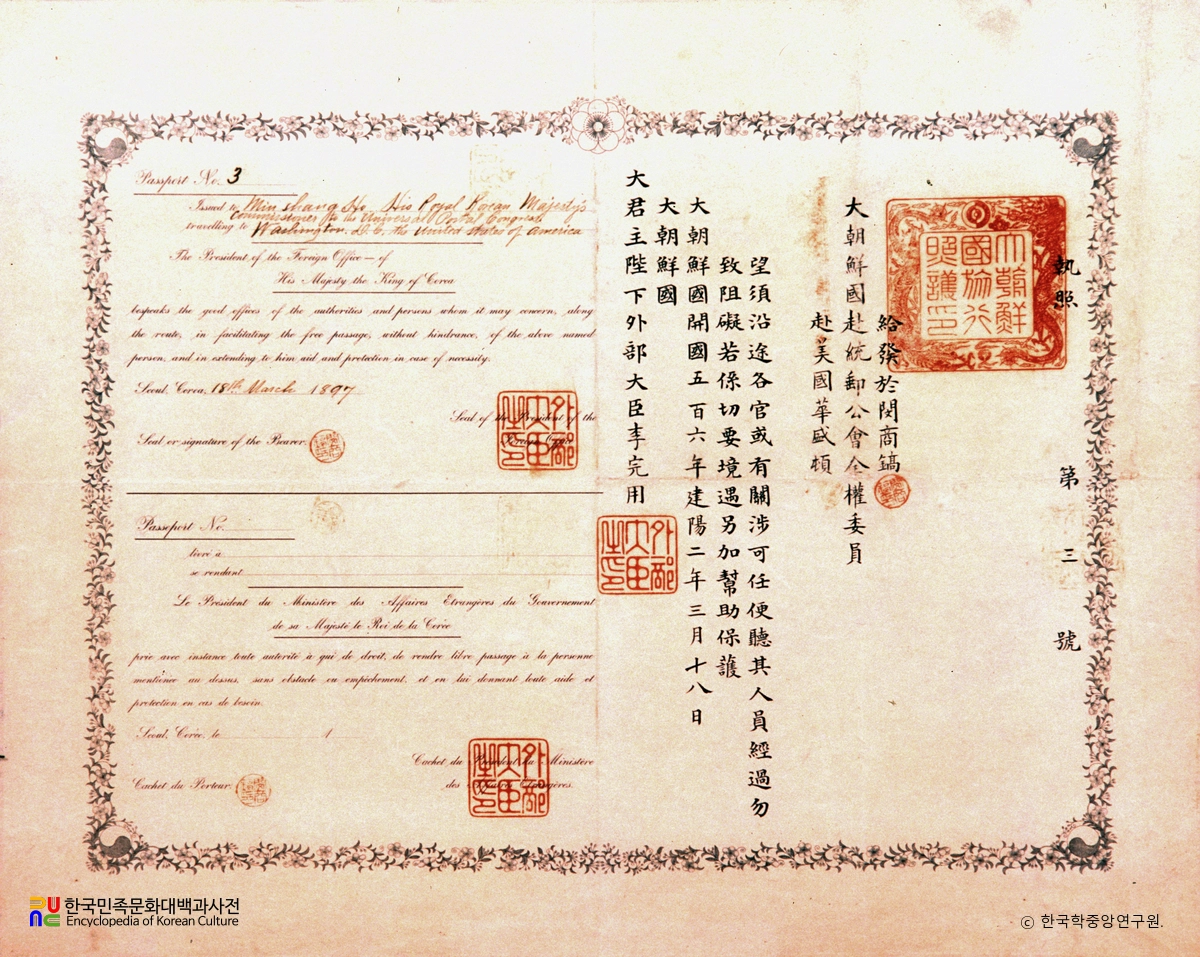 Passport No. 3
Issued to Min Shang Ho His Royal Korean Majesty's
Commissioner for the Universal Postal Congress
travelling to Washington. D.C. the United States of America
The President of the Foreign Office — of
His Majesty the King of Corea
bespeaks the good offices of the authorities and persons whom it may concern, along
the route, in facilitating the free passage, without hindrance, of the above named
person, and in extending to him aid and protection in case of necessity.
Seoul, Corea, 18th March 1897
Seal of the President of the
Foreign Office
Seal or signature of the Bearer.
Passeport No.
livré à
se rendant
Le Président du Ministère des Affaires Etrangères du Gouvernement
de sa Majesté le Roi de la Corée
prie avec instance toute autorité à qui de droit, de rendre libre passage à la personne
mentionée au dessus, sans obstacle ou empêchement, et en lui donnant toute aide et
protection en cas de besoin.
Seoul, Corée, le 1
Cachet du Président du Ministère
des Affaires Etrangères.
Cachet du Porteur.
執照
第三號
大朝鮮國協行昭護之印
給發於閔商鎬
大朝鮮國赴統郵公會全權委員
赴美國華盛頓
望須沿途各官或有關涉可任便聽其人員經過勿
致阻礙若係切要境遇另加幫助保護
大朝鮮國開國五百六年建陽二年三月十八日
大朝鮮國
大君主陛下外部大臣李完用
外部大臣之印
外部大臣之印
外部大臣之印
한국민족문화대백과사전
Encyclopedia of Korean Culture
© 한국학중앙연구원.